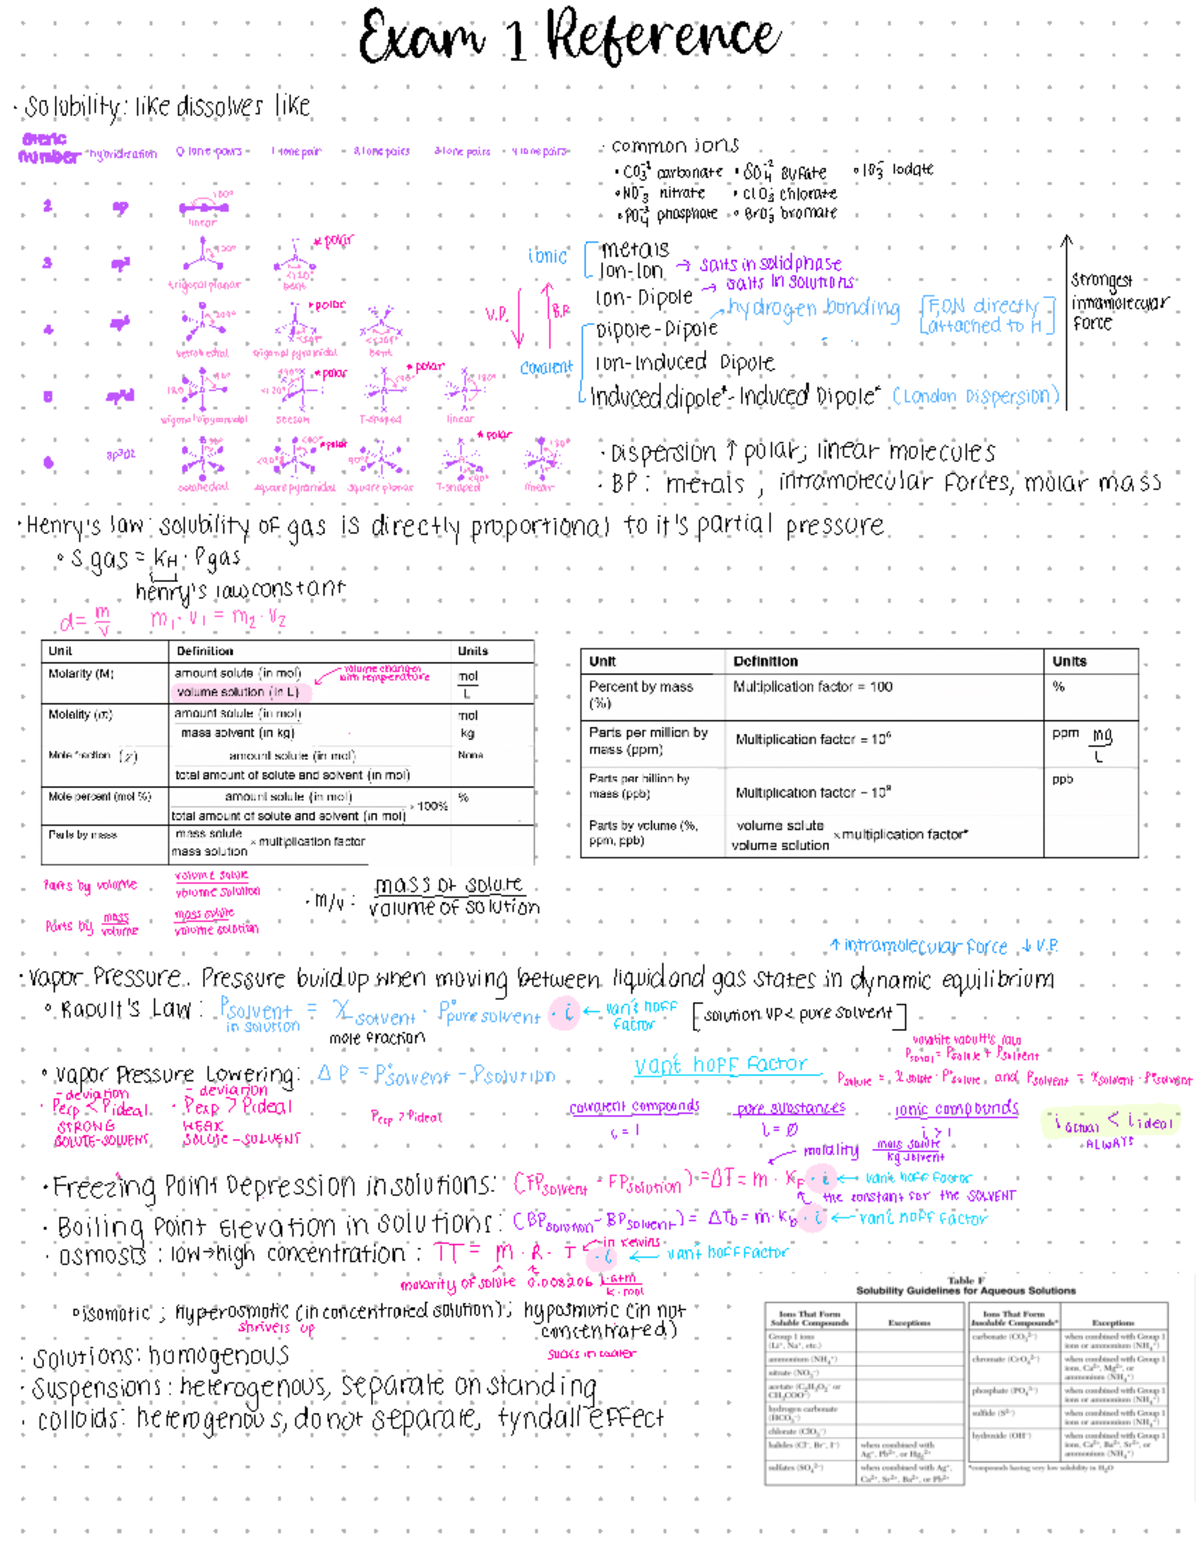 Exam 1 Reference
· Solubility: like dissolves like
steric number hybridization 0 lone pairs 1 lone pair 2 lone pairs 3 lone pairs 4 lone pairs
2 sp 180°
linear
3 sp² 120° * polar
trigonal planar bent <120°
4 * polar
tetrahedral trigonal pyramidal bent
5 * polar * polar
trigonal bipyramidal seesaw T-shaped linear
6 sp³d² * polar * polar
octahedral square pyramidal square planar T-shaped linear
· common ions
• CO₃⁻² carbonate • SO₄⁻² sulfate • IO₃⁻ iodate
• NO₃⁻ nitrate • ClO₃⁻ chlorate
• PO₄⁻³ phosphate • BrO₃⁻ bromate
ionic
metals
Ion-Ion → salts in solid phase
Ion-Dipole → salts in solutions
→ hydrogen bonding [F,O,N directly attached to H]
V.P. B.P.
Covalent
Dipole-Dipole
Ion-Induced Dipole
Induced dipole*-Induced Dipole* (London Dispersion)
strongest intramolecular force
· Dispersion ↑ polar; linear molecules
· BP: metals, intramolecular forces, molar mass
· Henry's law: solubility of gas is directly proportional to it's partial pressure
° S gas = kH · Pgas
henry's law constant
d = m/v m₁·v₁ = m₂·v₂
Unit Definition Units
Molarity (M) amount solute (in mol) / volume solution (in L) mol/L
volume changes with temperature
Molality (m) amount solute (in mol) / mass solvent (in kg) mol/kg
Mole fraction (χ) amount solute (in mol) / total amount of solute and solvent (in mol) None
Mole percent (mol %) amount solute (in mol) / total amount of solute and solvent (in mol) × 100% %
Parts by mass mass solute / mass solution × multiplication factor
Unit Definition Units
Percent by mass (%) Multiplication factor = 100 %
Parts per million by mass (ppm) Multiplication factor = 10⁶ ppm mg/L
Parts per billion by mass (ppb) Multiplication factor = 10⁹ ppb
Parts by volume (%, ppm, ppb) volume solute / volume solution × multiplication factor*
Parts by volume volume solute / volume solution
Parts by mass/volume mass solute / volume solution
· m/v: mass of solute / volume of solution
↑ intramolecular force ↓ V.P.
· Vapor Pressure.. Pressure buildup when moving between liquid and gas states in dynamic equilibrium
° Raoult's Law: Psolvent in solution = χsolvent · P°pure solvent · i ← van't hoff factor [solution VP < pure solvent]
mole fraction
volatile raoult's law
Ptotal = Psolute + Psolvent
Psolute = χsolute · P°solute, and Psolvent = χsolvent · P°solvent
° Vapor Pressure Lowering: ΔP = P°solvent - Psolution
van't hoff factor
- deviation - deviation
· Pexp < Pideal · Pexp > Pideal
STRONG WEAK
SOLUTE-SOLVENT SOLUTE-SOLVENT
Pexp > Pideal
covalent compounds pure substances ionic compounds
i = 1 i = 0 i > 1
i actual < i ideal
ALWAYS
molality mols solute / kg solvent
· Freezing Point Depression in solutions: (FPsolvent - FPsolution) = ΔT = m · KF · i ← van't hoff factor
the constant for the SOLVENT
· Boiling Point Elevation in solutions: (BPsolution - BPsolvent) = ΔTb = m · Kb · i ← van't hoff factor
· osmosis: low→high concentration: π = m · R · T · i ← van't hoff factor
in kelvins
molarity of solute 0.008206 L·atm / K·mol
° isomotic; hyperosmotic (in concentrated solution); hyposmotic (in not concentrated)
shrivels up
sucks in water
· Solutions: homogenous
· Suspensions: heterogenous, separate on standing
· colloids: heterogenous, do not separate, tyndall effect
Table F
Solubility Guidelines for Aqueous Solutions
Ions That Form Soluble Compounds Exceptions
Group 1 ions (Li⁺, Na⁺, etc.)
ammonium (NH₄⁺)
nitrate (NO₃⁻)
acetate (C₂H₃O₂⁻ or CH₃COO⁻)
hydrogen carbonate (HCO₃⁻)
chlorate (ClO₃⁻)
halides (Cl⁻, Br⁻, I⁻) when combined with Ag⁺, Pb²⁺, or Hg₂²⁺
sulfates (SO₄²⁻) when combined with Ag⁺, Ca²⁺, Sr²⁺, Ba²⁺, or Pb²⁺
Ions That Form Insoluble Compounds* Exceptions
carbonate (CO₃²⁻) when combined with Group 1 ions or ammonium (NH₄⁺)
chromate (CrO₄²⁻) when combined with Group 1 ions, Ca²⁺, Mg²⁺, or ammonium (NH₄⁺)
phosphate (PO₄³⁻) when combined with Group 1 ions or ammonium (NH₄⁺)
sulfide (S²⁻) when combined with Group 1 ions or ammonium (NH₄⁺)
hydroxide (OH⁻) when combined with Group 1 ions, Ca²⁺, Ba²⁺, Sr²⁺, or ammonium (NH₄⁺)
*compounds having very low solubility in H₂O